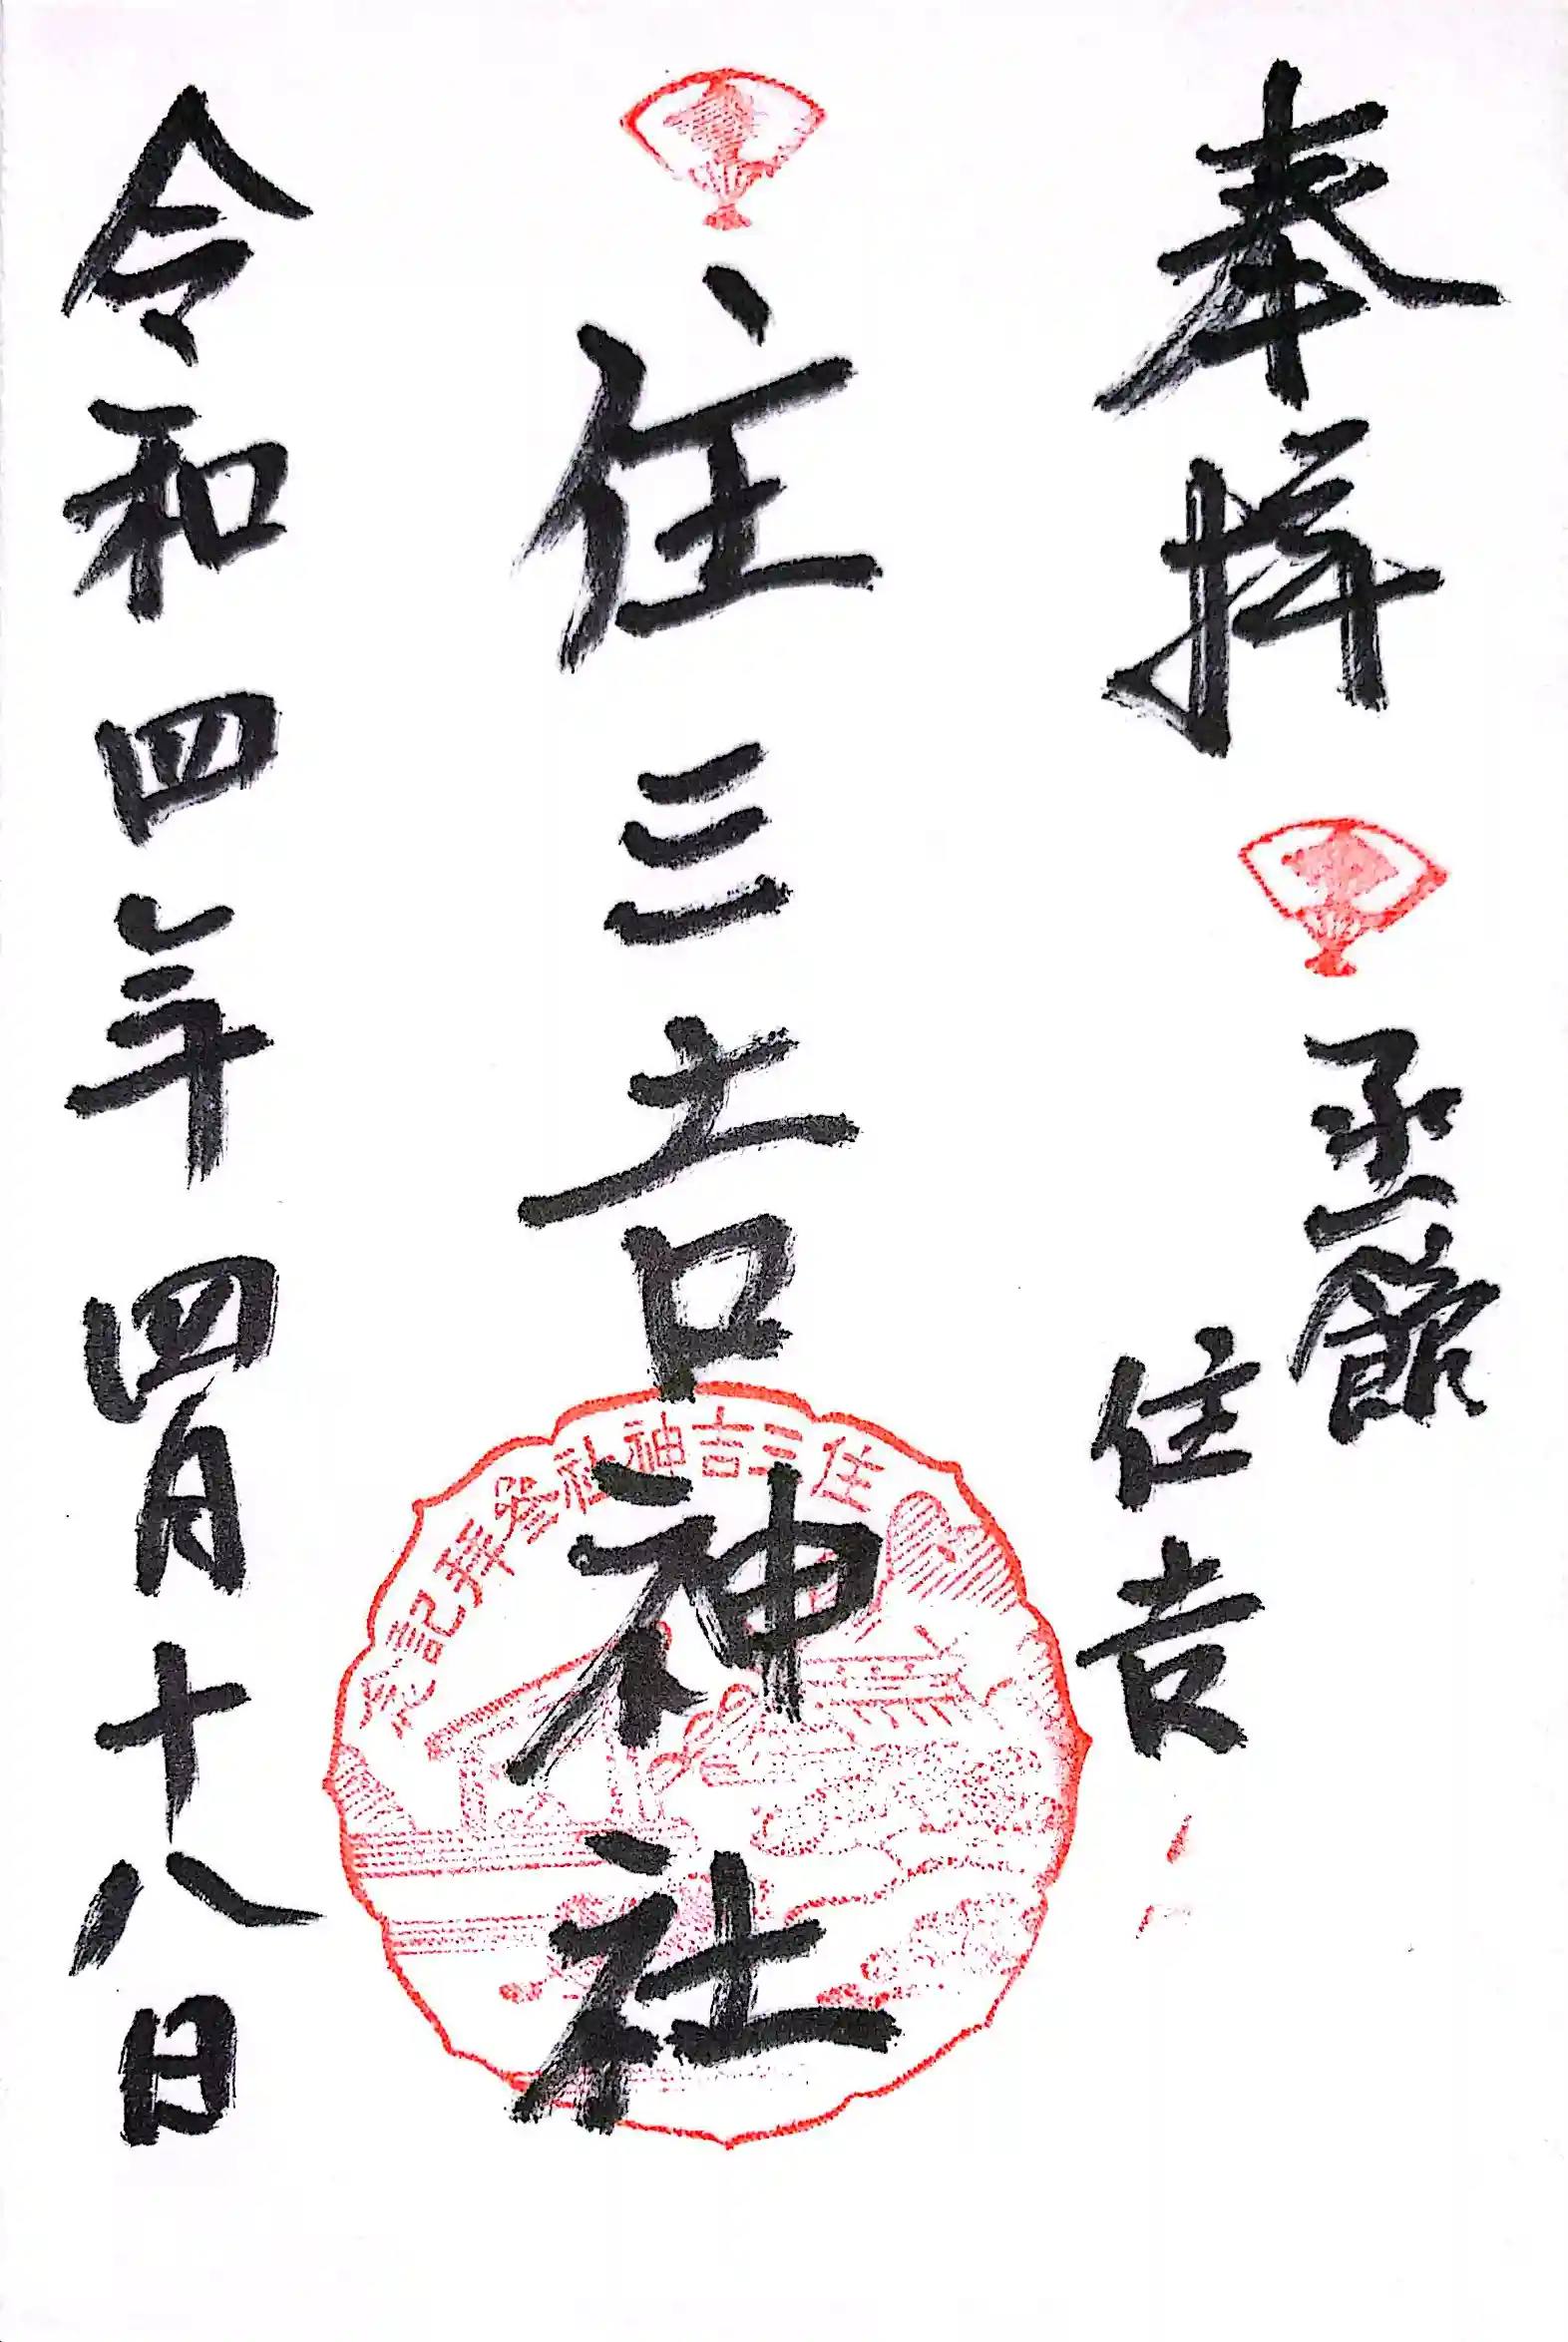 奉拝
函館
住吉
住三吉神社
住三吉神社參拜記念
令和四年四月十八日